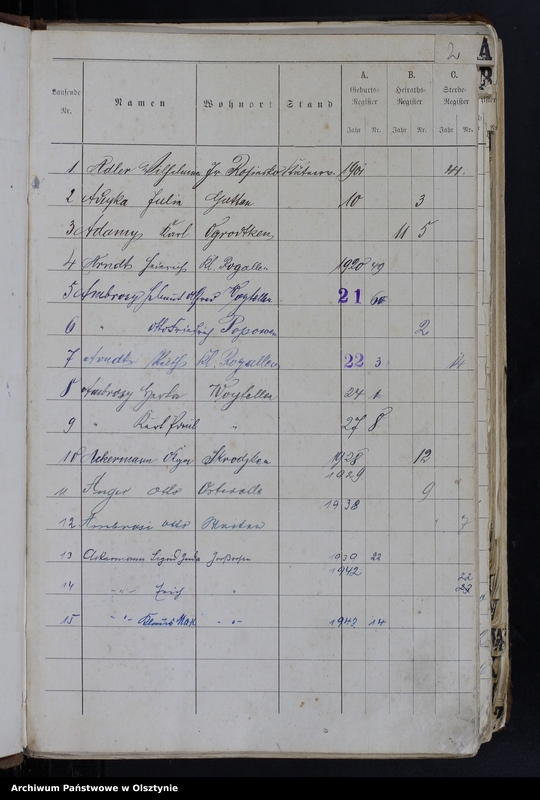 2
A
B
Laufende Nr. Namen Wohnort Stand A. Geburts-Register Jahr Nr. B. Heiraths-Register Jahr Nr. C. Sterbe-Register Jahr Nr.
1 Adler Wilhelmine Gr. 1901 44.
2 Julie Gutten 10 3
3 Adamy Karl Ogrodtken 11 5
4 Arndt Heinrich Kl. Rogallen 1920 49
5 Ambrosy Helmut Alfred Woytellen 21 60
6 " Otto Friedrich Popowen 2
7 Arndt Kl. Rogallen 22 3 14
8 Ambrosy Herta Woytellen 24 1
9 " Kurt Paul " 27 8
10 Ackermann Skrodzken 1928 12
1929
11 Anger Otto 9 "
1938
12 Ambrosi Otto 7
13 Ackermann 1939 22
1942
14 -"- Erich " 22
15 -"- Klaus Max -"- 1942 14
Archiwum Państwowe w Olsztynie